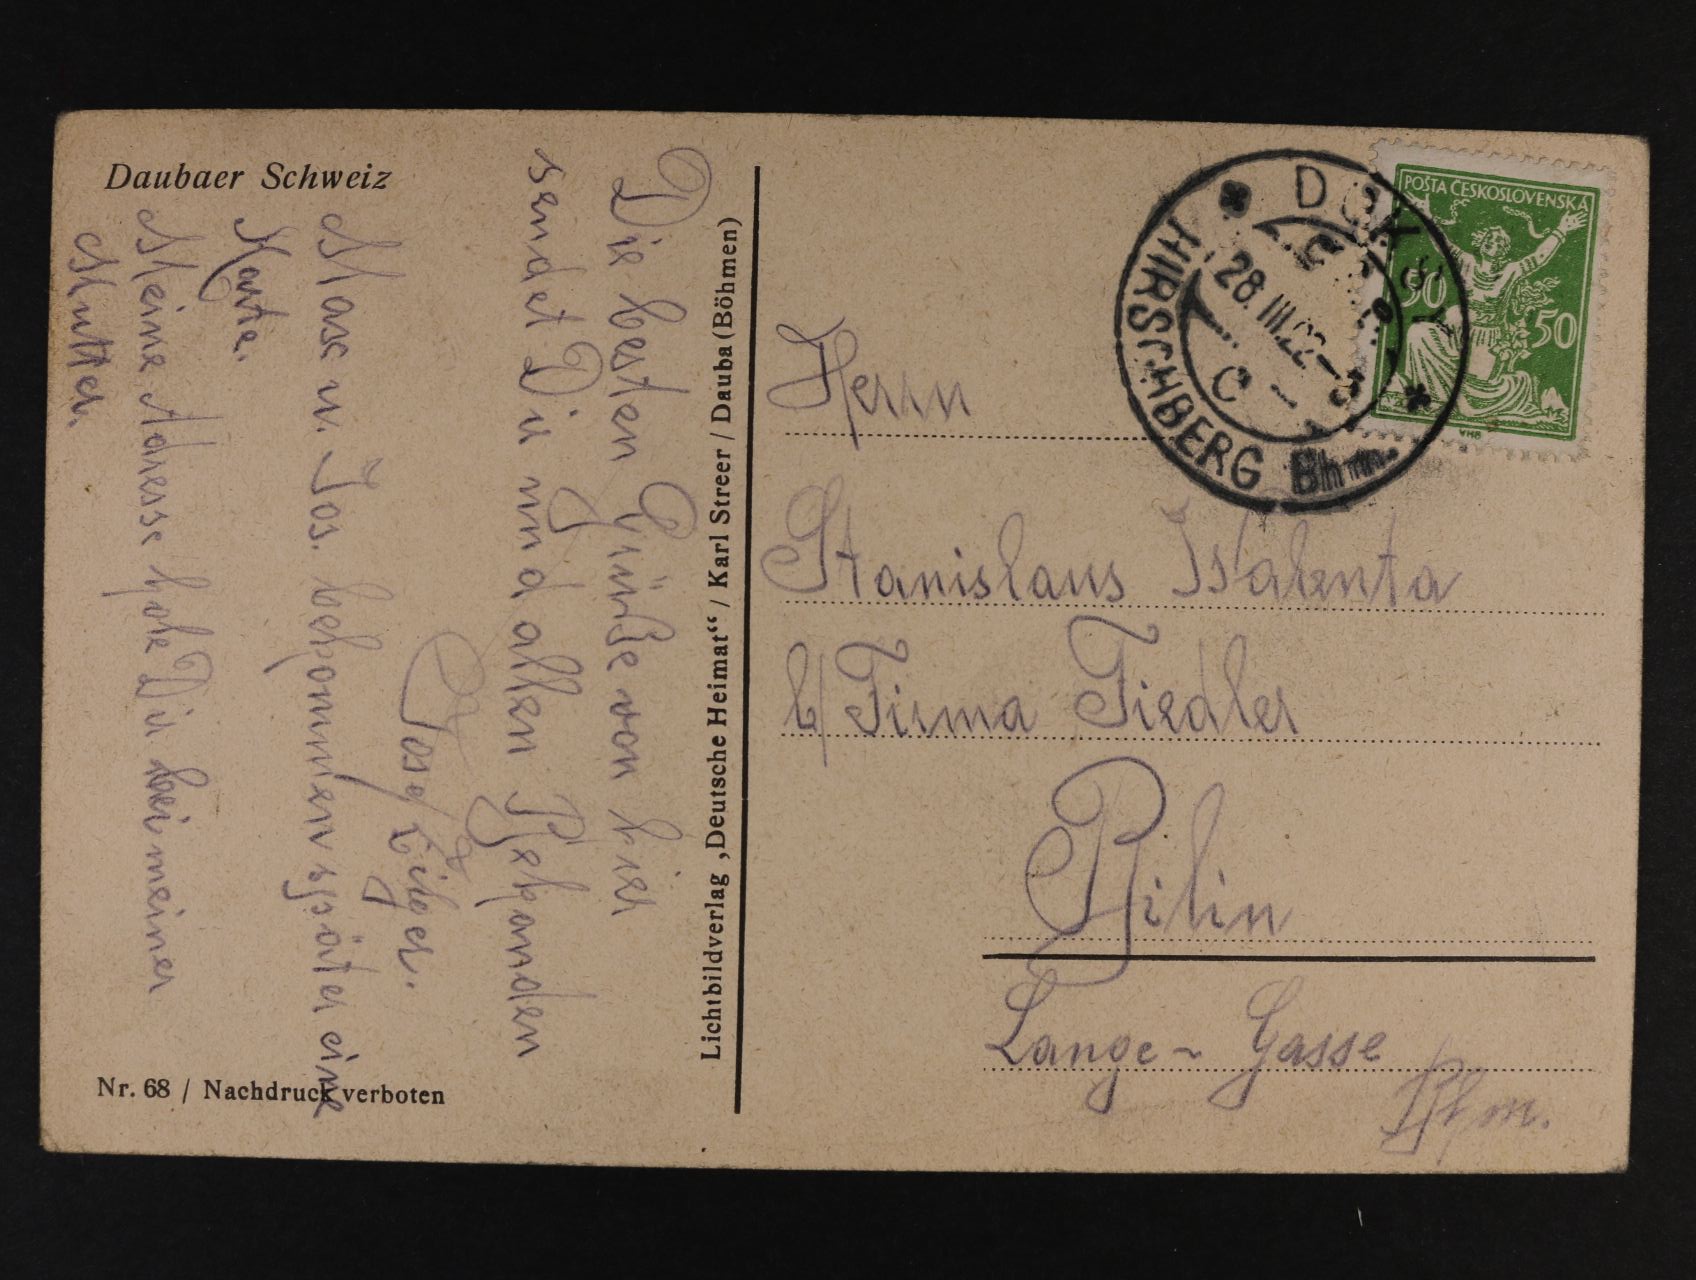 Daubaer Schweiz
Die besten Grüße von hier
sendet Dir und allen Bekannden
Josef
Maxe u. Jos. bekommen später eine
Karte.
Meine Adresse hole Dir bei meiner
Mutter.
Nr. 68 / Nachdruck verboten
Lichtbildverlag „Deutsche Heimat“ / Karl Streer / Dauba (Böhmen)
POŠTA ČESKOSLOVENSKÁ
50 50
DOKSY
28.III.22
HIRSCHBERG Böhm.
Herrn
Stanislaus Walenta
b/ Firma Fiedler
Bilin
Lange - Gasse
Bhm.